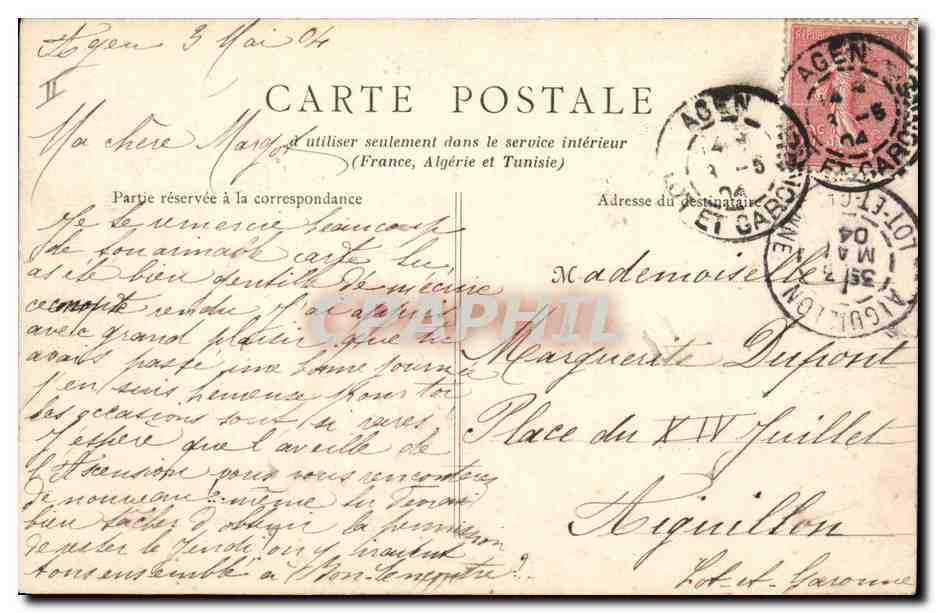 Agen 3 Mai 04
II
CARTE POSTALE
Ma chère Margot
à utiliser seulement dans le service intérieur
(France, Algérie et Tunisie)
Partie réservée à la correspondance
Je te remercie beaucoup
de ton aimable carte tu
as été bien gentille de m'écrire
ce rendu J'ai appris
avec grand plaisir que tu
avais passé une bonne journée
j'en suis heureuse pour toi
les occasions sont si rares!
J'espère que l'aveille de
l'Ascension vous vous rencontrerez
de nouveau même tu devrais
bien tâcher d'obtenir la permission
de rester le Jeudi on y irait
tous ensemble à Bon-Encontre?
Adresse du destinataire
Mademoiselle
Marguerite Dupont
Place du XIV Juillet
Aiguillon
Lot-et-Garonne
AGEN
3 -5
04
LOT ET GARONNE
AGEN
3 -5
04
LOT ET GARONNE
AIGUILLON
3 MAI
04
LOT-ET-GARONNE
CPAPHIL